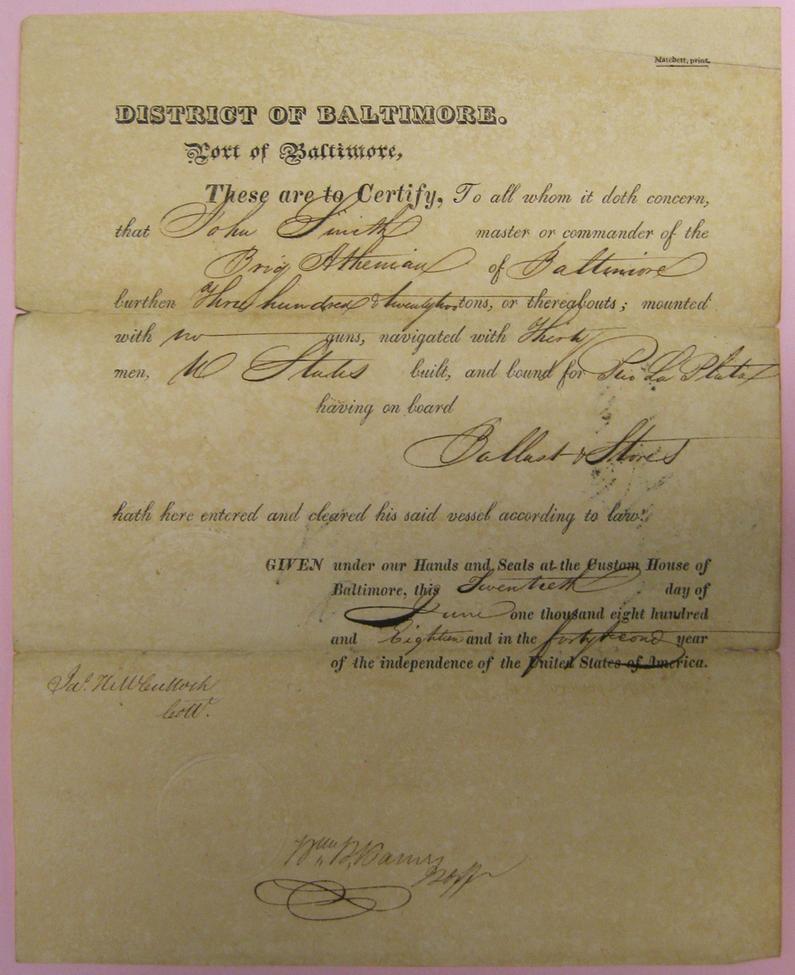 Matchett, print.
DISTRICT OF BALTIMORE.
Port of Baltimore,
These are to Certify, To all whom it doth concern,
that John Smith master or commander of the
Brig Athenian of Baltimore
burthen Three hundred & twenty two tons, or thereabouts; mounted
with no guns, navigated with Thirty
men, U States built, and bound for Rio La Plata
having on board
Ballast & Stores
hath here entered and cleared his said vessel according to law.
GIVEN under our Hands and Seals at the Custom House of
Baltimore, this Twentieth day of
June one thousand eight hundred
and Eighteen and in the forty second year
of the independence of the United States of America.
Jas. H McCulloch
Collr.
Wm B. Barney